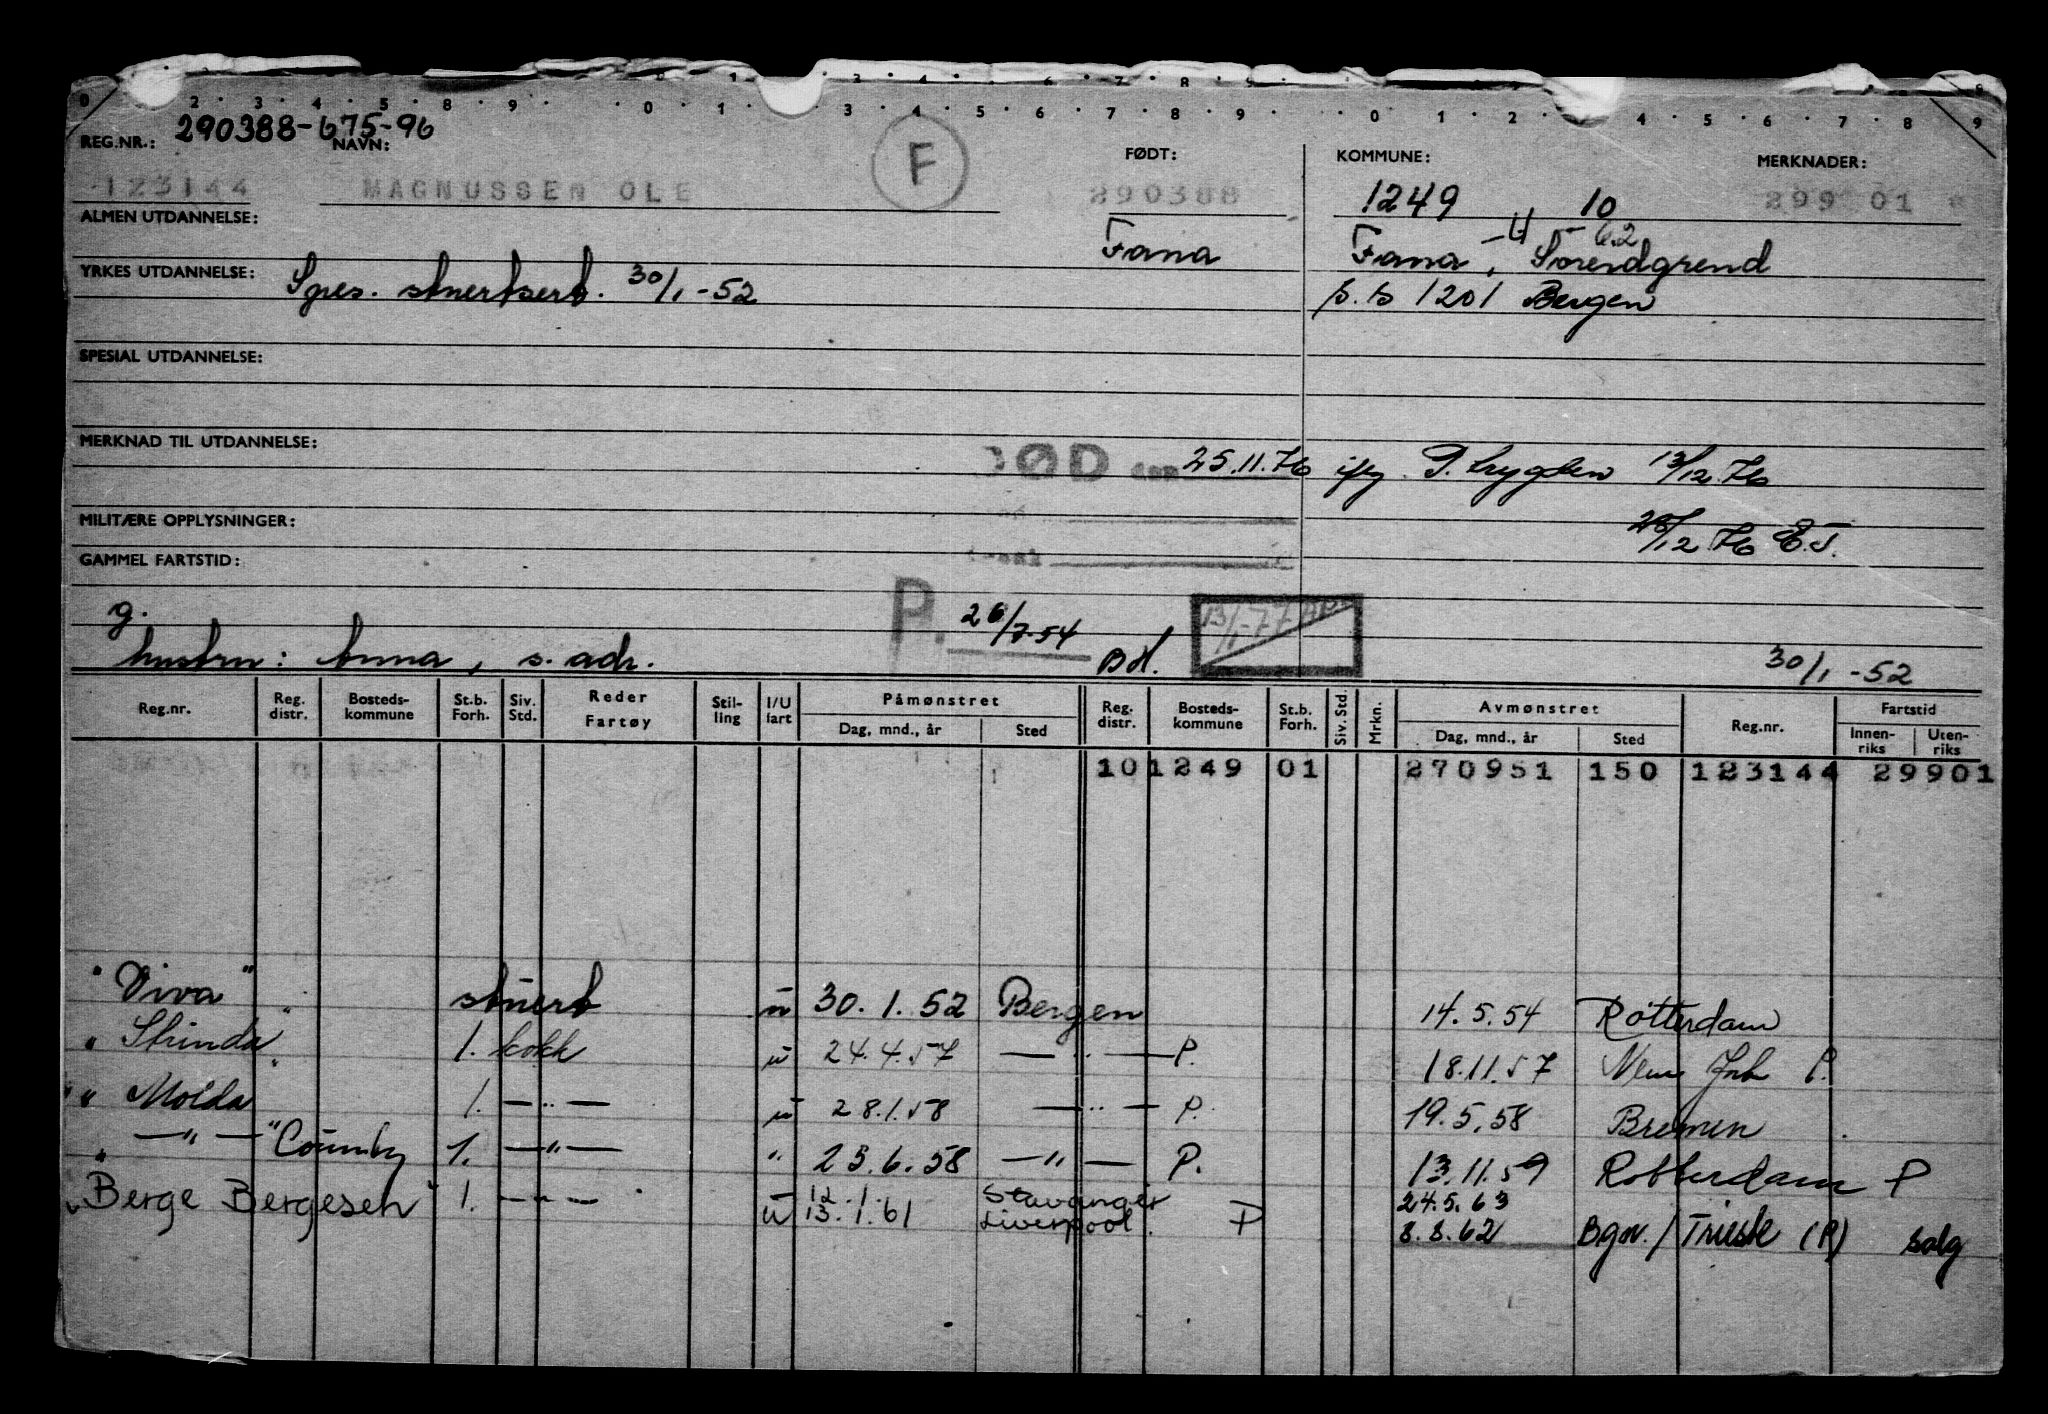 0 2 · 3 · 4 · 5 · 8 · 9 · 0 · 1 · 3 · 4 · 5 · 6 · 7 · 8 · 9 · 0 · 1 · 2 · 4 · 5 · 6 · 7 · 8 · 9
REG.NR.: 290388-675-96 NAVN: F FØDT: KOMMUNE: MERKNADER:
123144 MAGNUSSEN OLE 290388 1249 10 299 01
ALMEN UTDANNELSE: Fana Fana,
YRKES UTDANNELSE: Spes. stuertsert. 30/1-52 Bergen
SPESIAL UTDANNELSE:
MERKNAD TIL UTDANNELSE: DØD den 25.11.76 13/12.76
MILITÆRE OPPLYSNINGER: 12.76 E.J.
GAMMEL FARTSTID:
g. P. 26/7-54 13/1-77
hustru: Anna, s. adr. 30/1-52
Reg.nr. Reg. distr. Bosteds-kommune St.b. Forh. Siv. Std. Reder Fartøy Stil-ling I/U fart Påmønstret Dag, mnd., år Sted Reg. distr. Bosteds-kommune St.b. Forh. Siv. Std. Mrkn. Avmønstret Dag, mnd., år Sted Reg.nr. Fartstid Innen-riks Uten-riks
10 1249 01 270951 150 123144 29901
"Viva" stuert u 30.1.52 Bergen 14.5.54 Rotterdam
"Strinda" 1. kokk u 24.4.57 — " — P. 18.11.57 P.
" Molda 1. — " — u 28.1.58 — " — P. 19.5.58 Bremen
" — " — " Country 1. — " — " 23.6.58 — " — P. 13.11.59 Rotterdam P
"Berge Bergesen" 1. — " — u 12.1. 13.1.61 Stavanger Liverpool. P 24.5.63
8.8.62 Bgn./Trieste (P) salg